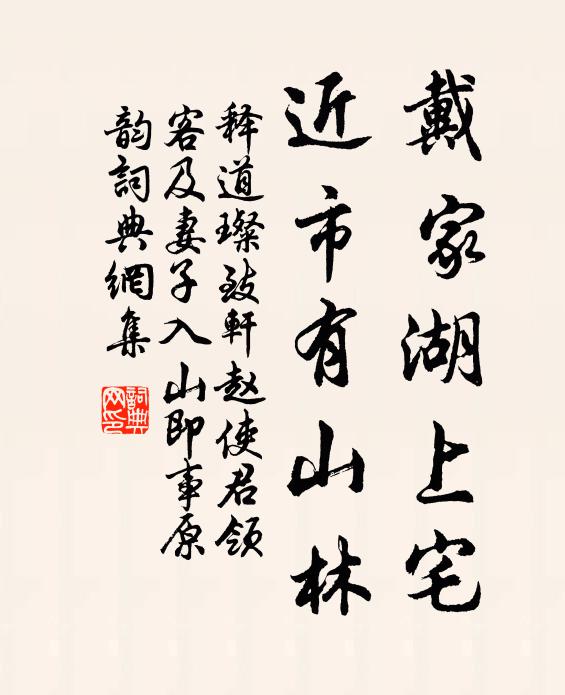 戴家湖上宅
近市有山林
释道璨致軒赵使君领
客及妻子入山即事原
韵詞典網集
詞典网印